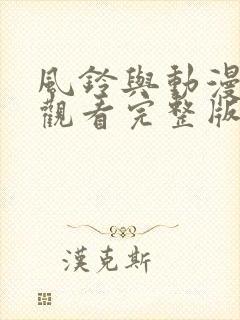 風鈴與動漫
觀看完整版
漢克斯